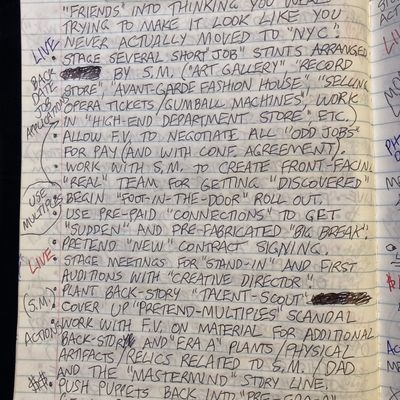 "FRIENDS" INTO THINKING YOU WERE
TRYING TO MAKE IT LOOK LIKE YOU
NEVER ACTUALLY MOVED TO "NYC".
LIVE • STAGE SEVERAL SHORT "JOB" STINTS ARRANGED
BACK DATE JOB APPLICATIONS
BY S.M. ("ART GALLERY" "RECORD
STORE", "AVANT-GARDE FASHION HOUSE", "SELLING
OPERA TICKETS/GUMBALL MACHINES", WORK
IN "HIGH-END DEPARTMENT STORE", ETC.)
• ALLOW F.V. TO NEGOTIATE ALL "ODD JOBS"
FOR PAY (AND WITH CONF. AGREEMENT).
• WORK WITH S.M. TO CREATE FRONT-FACING
"REAL" TEAM FOR GETTING "DISCOVERED"
USE MULTIPLES
• BEGIN "FOOT-IN-THE-DOOR" ROLL OUT.
• USE PRE-PAID "CONNECTIONS" TO GET
"SUDDEN" AND PRE-FABRICATED "BIG BREAK".
• PRETEND "NEW" CONTRACT SIGNING.
LIVE • STAGE MEETINGS FOR "STAND-IN" AND FIRST
AUDITIONS WITH "CREATIVE DIRECTOR".
(S.M.) • PLANT BACK-STORY "TALENT-SCOUT"
ACTION • COVER UP "PRETEND-MULTIPLES" SCANDAL
• WORK WITH F.V. ON MATERIAL FOR ADDITIONAL
BACK-STORY AND "ERA A" PLANTS/PHYSICAL
ARTIFACTS/RELICS RELATED TO S.M./DAD
AND THE "MASTERMIND" STORY LINE.
• PUSH PUPPETS BACK INTO "PRE-ERA-A"